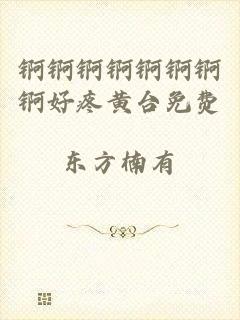 锕锕锕锕锕锕锕
锕好疼黄台免费
东方楠有